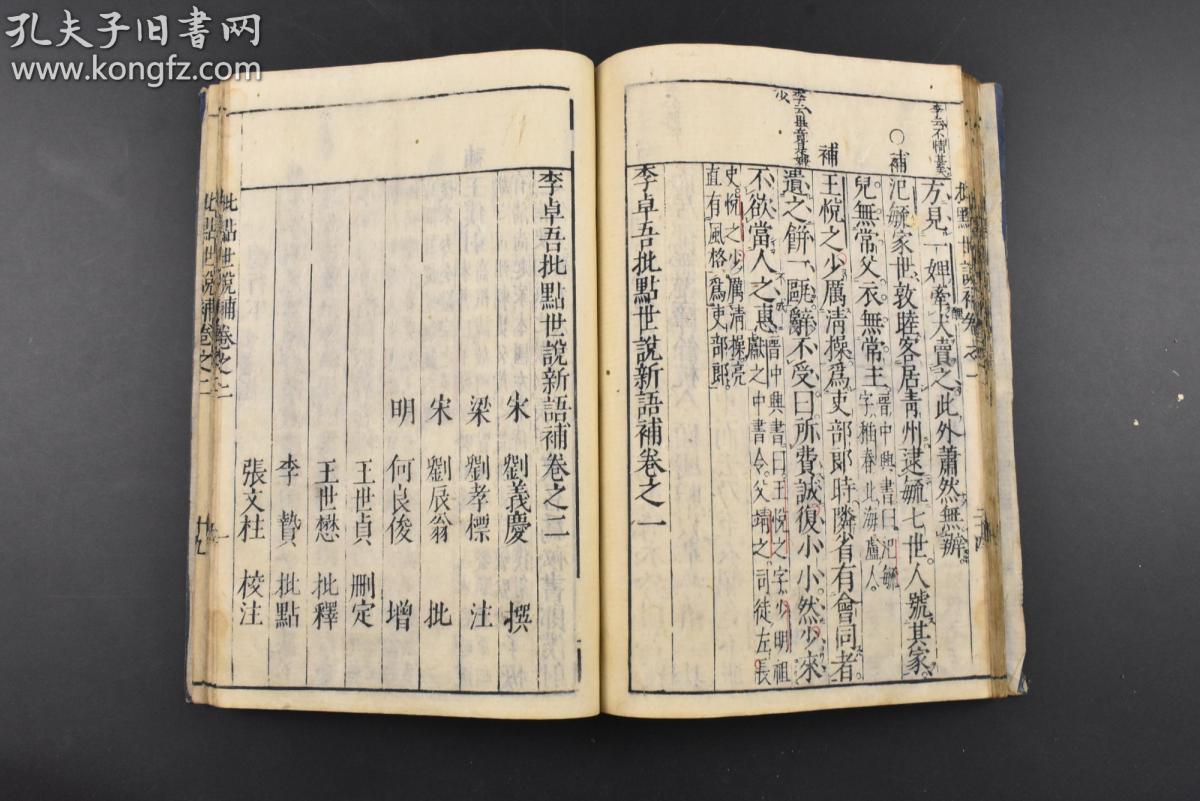 孔夫子旧书网
www.kongfz.com
李云不情甚
方見一婢牽犬賣之此外蕭然無辦
補
氾毓家世敦睦客居青州逮毓七世人號其家
兒無常父衣無常主
晉中興書曰氾毓
字稚春北海盧人
補
王悅之少厲清操爲吏部郎時隣省有會同者
遺之餅一甌辭不受曰所費誠復小小然少來
不欲當人之惠
晉中興書曰王悅之字少明祖
獻之中書令父靖之司徒左長
史悅之少厲清操亮
直有風格爲吏部郎
李卓吾批點世說新語補卷之一
李卓吾批點世說新語補卷之二
宋 劉義慶 撰
梁 劉孝標 注
宋 劉辰翁 批
明 何良俊 增
王世貞 刪定
王世懋 批釋
李贄 批點
張文柱 校注
批點世說補卷之二
一
批點世說補卷之二
十九